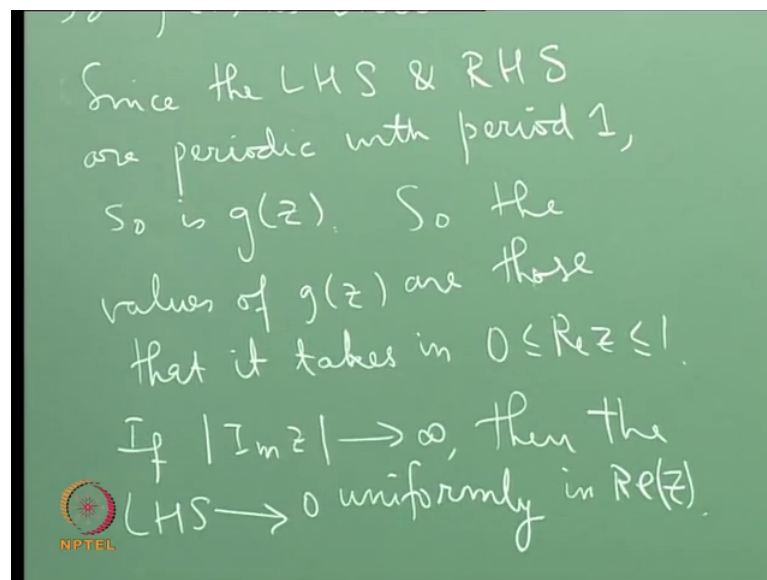 Since the LHS & RHS
are periodic with period 1,
so is g(z). So the
values of g(z) are those
that it takes in 0 ≤ Re z ≤ 1.
If |Im z| → ∞, then the
LHS → 0 uniformly in Re(z).
NPTEL